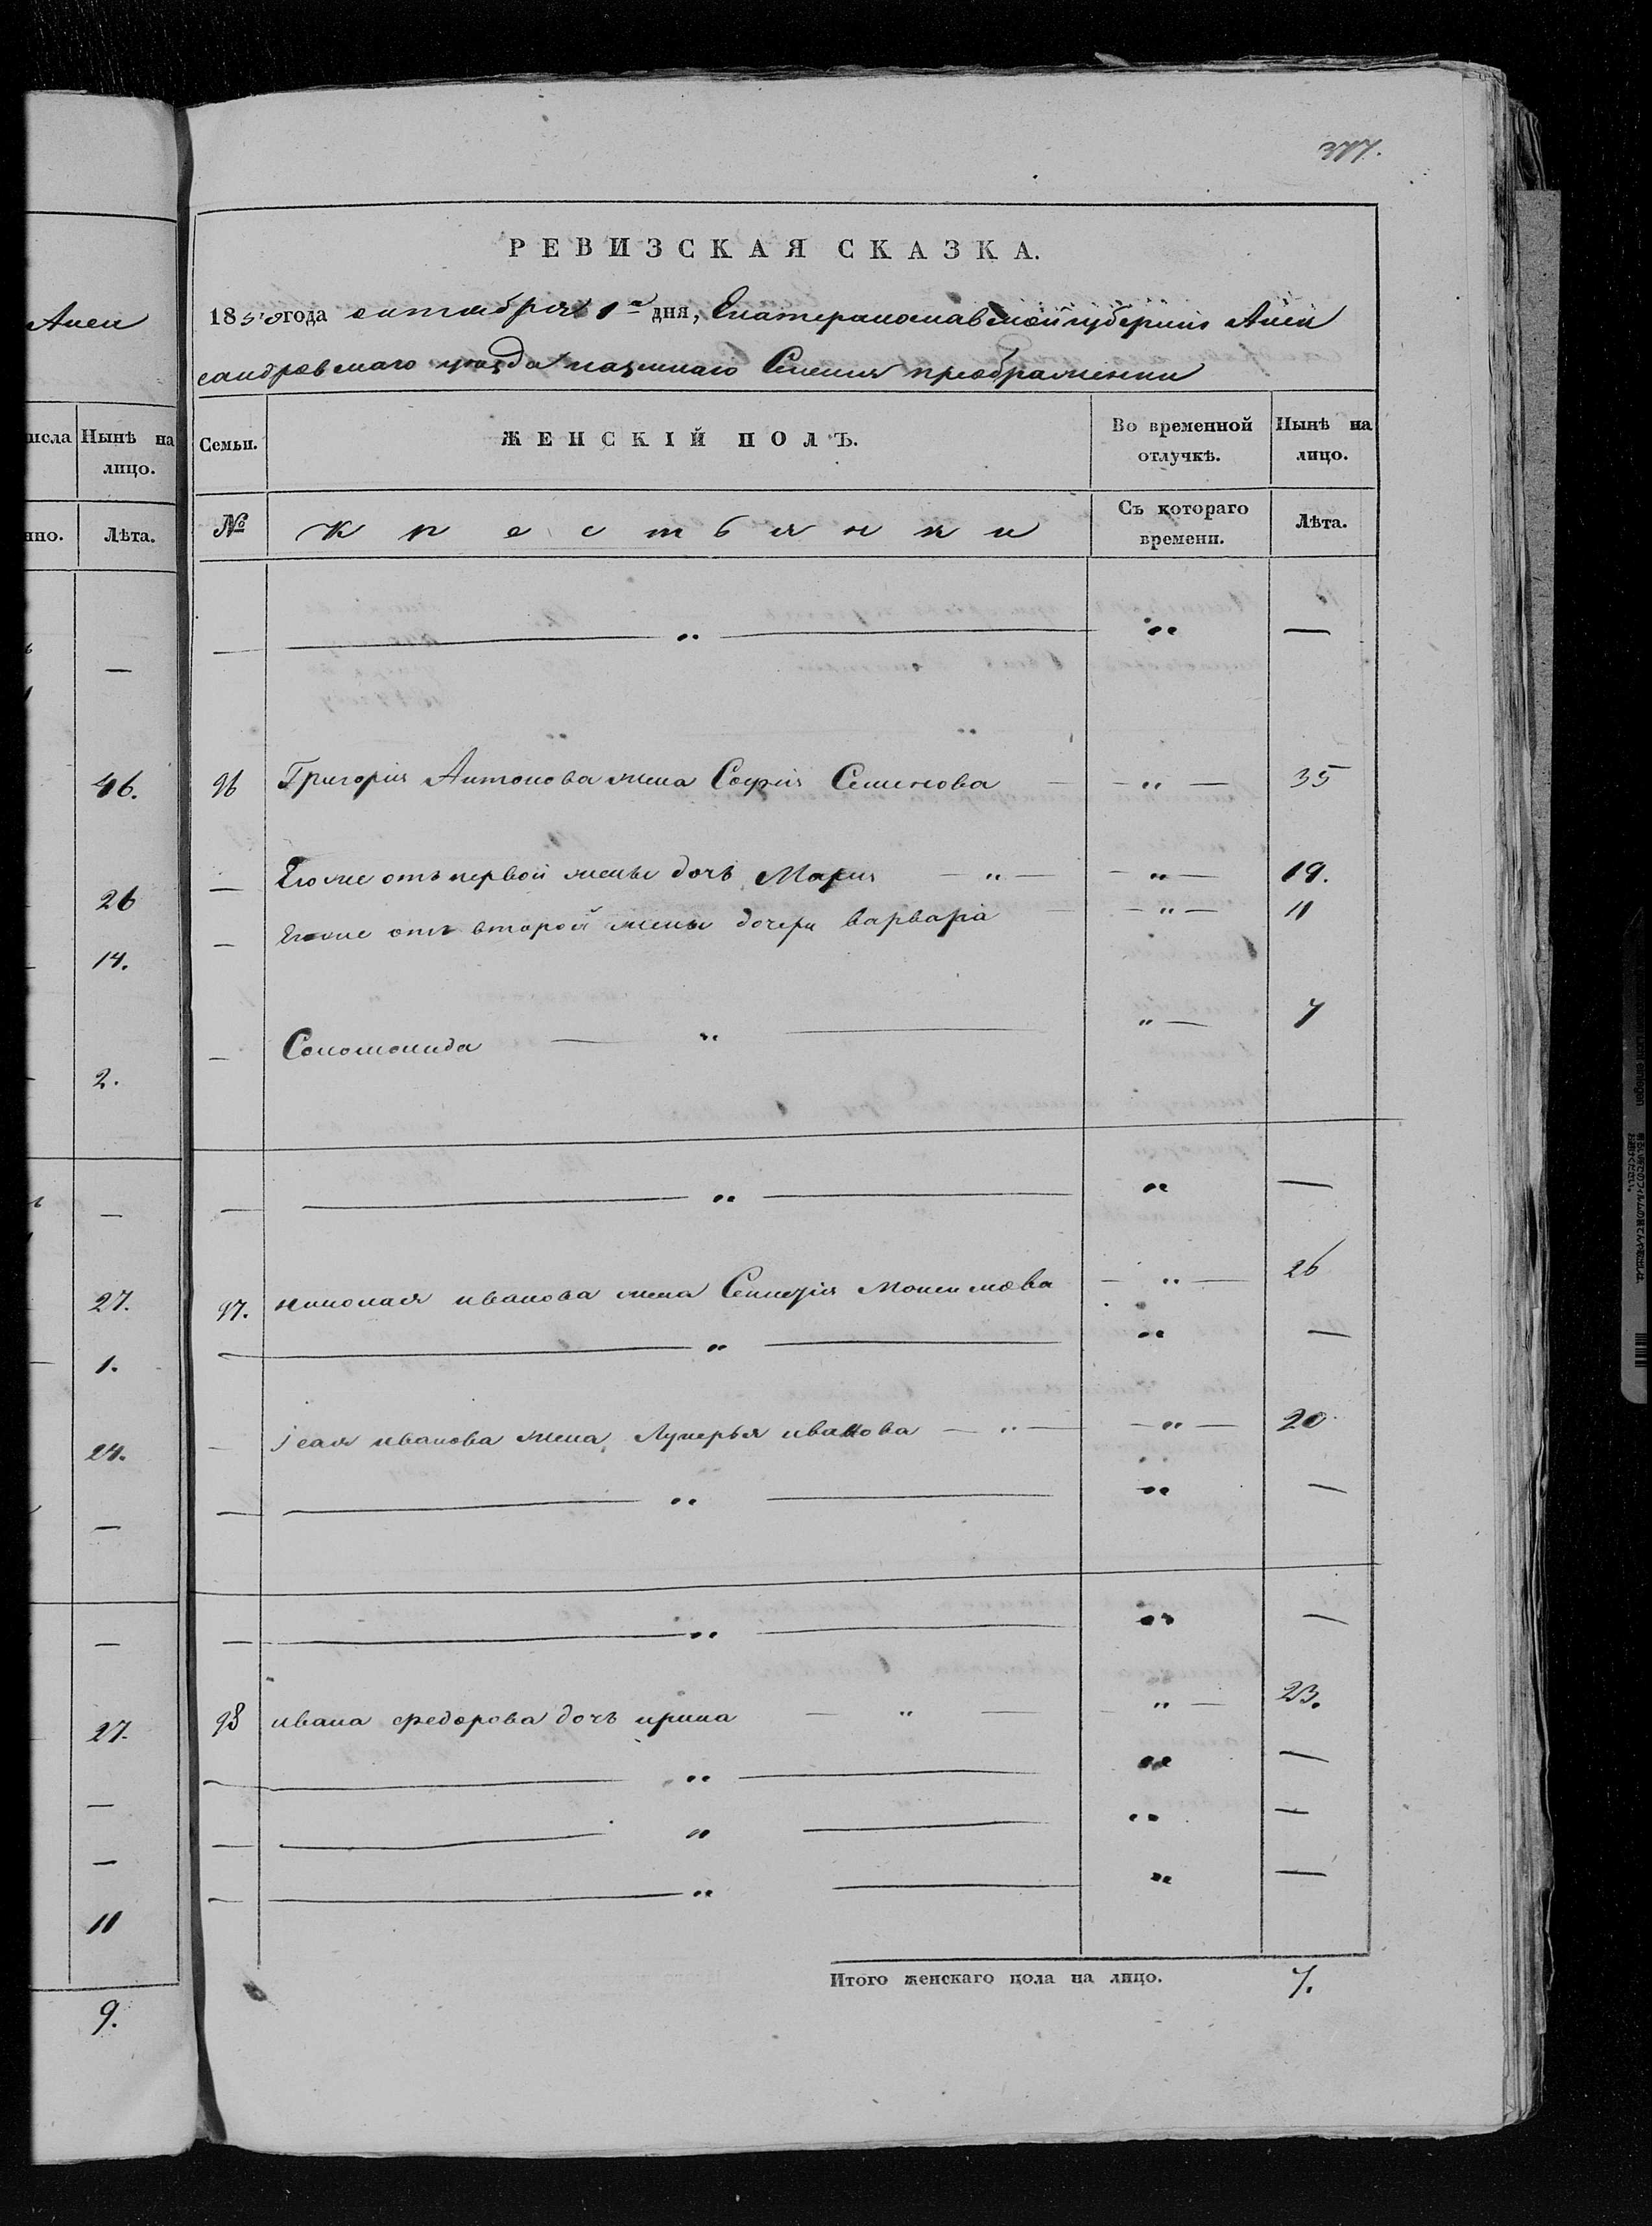 377.
РЕВИЗСКАЯ СКАЗКА.
1850 года октября 1го дня, Екатеринославской губерніи Алек
сандровскаго уезда казеннаго Селенія преображенки
Алек
Семьи. ЖЕНСКІЙ ПОЛЪ. Во временной отлучкѣ. Нынѣ на лицо.
№ Крестьянки Съ котораго времени. Лѣта.
исла Нынѣ на лицо.
нно. Лѣта.
— — „ — „ —
96 Григорія Антонова жена Софія Семенова — — „ — 35
— Его же отъ первой жены дочь Марія — „ — — „ — 19.
— Его же отъ второй жены дочери варвара — — „ — 11
— Соломонида — „ — „ — 7
— — „ — „ —
97. николая иванова жена Ксенія Моисилова — „ — 26
— — „ — „ —
— Ісая иванова жена Лукерья иванова — „ — — „ — 20
— — „ — „ —
— — „ — „ —
98 ивана федорова дочь ирина — „ — „ — 23.
— — „ — „ —
— — „ — „ —
— — „ — „ —
Итого женскаго пола на лицо. 7.
—
46.
26
14.
2.
—
27.
1.
24.
—
—
27.
—
—
11
9.